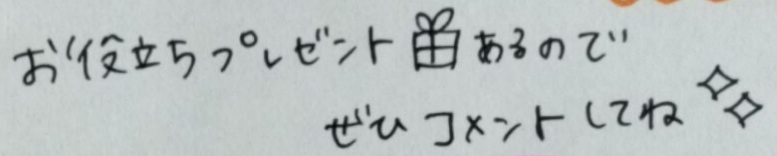 お役立ちプレゼント🎁あるので
ぜひコメントしてね✨